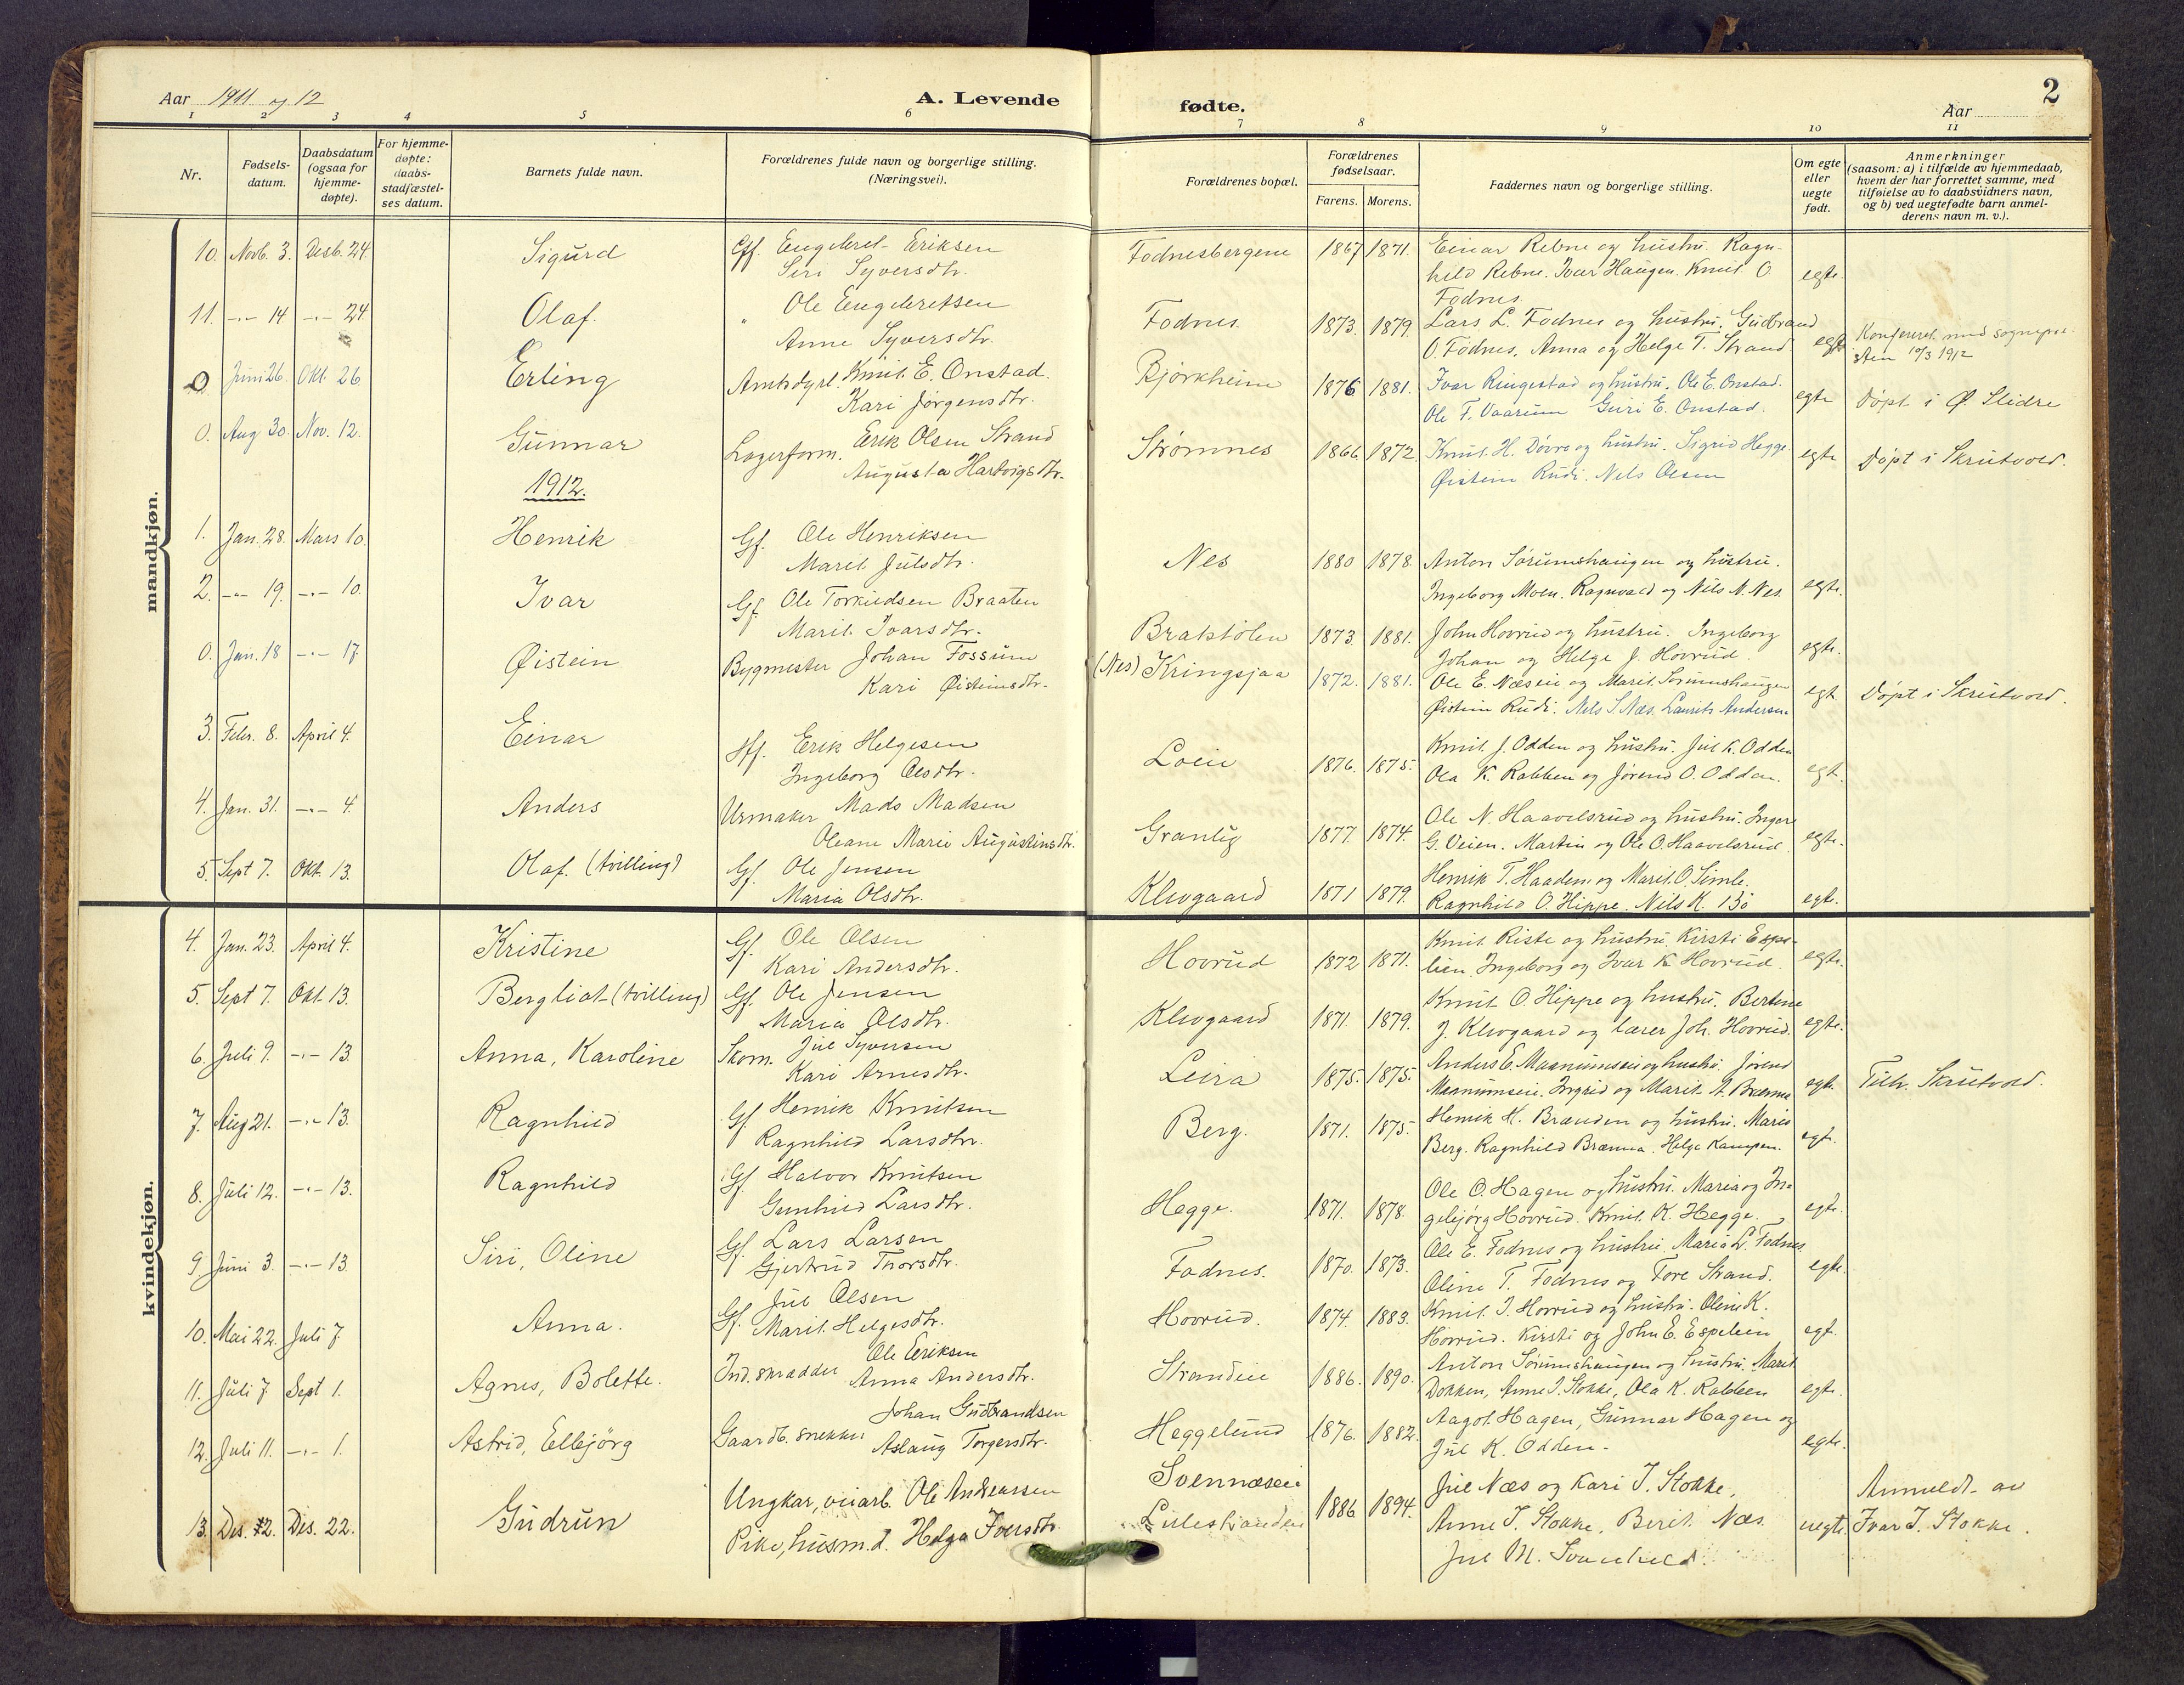 Aar 1911 og 12
A. Levende
fødte.
Aar
2
1 2 3 4 5 6 7 8 9 10 11
Nr.
Fødsels-
datum.
Daabsdatum
(ogsaa for
hjemme-
døpte).
For hjemme-
døpte:
daabs-
stadfæstel-
ses datum.
Barnets fulde navn.
Forældrenes fulde navn og borgerlige stilling.
(Næringsvei).
Forældrenes bopæl.
Forældrenes
fødselsaar.
Farens. Morens.
Faddernes navn og borgerlige stilling.
Om egte
eller
uegte
født.
Anmerkninger
(saasom: a) i tilfælde av hjemmedaab,
hvem der har forrettet samme, med
tilføielse av to daabsvidners navn,
og b) ved uegtefødte barn anmel-
derens navn m. v.).
mandkjøn.
10. Novb. 3. Desb. 24. Sigurd Gff. Engebret Eriksen Fodnesbergene 1867 1871. Einar Rebne og hustru. Ragn-
Siri Syversdtr. hild Rebne. Ivar Haugen. Knut O. egte.
Fodnes.
11. -"- 14 -"- 24. Olaf. " Ole Engebretsen Fodnes. 1873. 1879. Lars L. Fodnes og hustru. Gudbrand
Anne Syversdtr. O. Fodnes. Anna og Helge T. Strand. egte Konfereret med sognepre-
sten 19/3 1912
0 Juni 26. Okt. 26 Erling Amtsdyrl. Knut E. Onstad. Bjørkheim 1876 1881. Ivar Ringestad og hustru. Ole E. Onstad.
Kari Jørgensdtr. Ole F. Vaarum Guri E. Onstad. egte Døpt i Ø. Slidre
0. Aug 30. Nov. 12. Gunnar Lagerform. Erik Olsen Strand Strømnes 1866. 1872. Knut H. Dovre og hustru. Sigrid Hegge
Augusta Hartvigsdtr. Øistein Rudi. Nels Olsen egte Døpt i Skrutvold.
1912.
1. Jan. 28. Mars 10. Henrik Gf. Ole Henriksen Nes 1880 1878. Anton Sørumshaugen og hustru.
Marit Julsdtr. Ingeborg Moen. Ragnvald og Nils N. Nes. egte.
2. -"- 19. -"- 10. Ivar Gf. Ole Torkildsen Braaten Bratstølen 1873. 1881. John Hovrud og hustru. Ingeborg
Marit Ivarsdtr. Johan og Helge J. Hovrud. egte.
0. Jan. 18 -"- 17. Øistein Bygmester Johan Fossum (Nes) Kringsjaa 1872. 1881. Ole E. Næseie og Marit Sørumshaugen
Kari Øisteinsdtr. Øistein Rudi. Nels S. Næs. Laurits Andersen egt. Døpt i Skrutvold.
3. Febr. 8. April 4. Einar Hff. Erik Helgesen Loein 1876. 1875. Knut J. Odden og hustru. Jul K. Odden
Ingeborg Olsdtr. Ola K. Robben og Jørend O. Odden. egt.
4. Jan. 31. -"- 4. Anders Urmaker Mads Madsen Granlig 1877. 1874. Ole N. Haavelsrud og hustru. Inger
Oleane Marie Augustinsdtr. G. Veien. Martin og Ole O. Haavelsrud. egte.
5. Sept 7. Okt. 13. Olaf. (tvilling) Gf. Ole Jensen Klevgaard 1871 1879. Henrik T. Haadem og Marit O. Simle.
Maria Olsdtr. Ragnhild O. Hippe. Nils K. Bø egte.
kvindekjøn.
4. Jan. 23. April 4. Kristine Gf. Ole Olsen Hovrud 1872 1871. Knut Riste og hustru. Kirsti Espe-
Kari Andersdtr. lien. Ingeborg og Ivar K. Hovrud. egte.
5. Sept 7. Okt. 13. Bergliot (tvilling) Gf. Ole Jensen Klevgaard 1871. 1879. Knut O. Hippe og hustru. Bertine
Maria Olsdtr. J. Klevgaard og lærer Joh. Hovrud. egte.
6. Juli 9. -"- 13. Anna, Karoline Skom. Jul Syversen Leira 1875. 1875. Anders E. Maanumseie og hustru. Jørend
Kari Arnesdtr. Maanumseie. Ingrid og Marit A. Brænna egt. Tilh. Skrutvold.
7. Aug 21. -"- 13. Ragnhild Gf Henrik Knutsen Berg. 1871. 1875. Henrik H. Brænden og hustru. Marit
Ragnhild Larsdtr. Berg. Ragnhild Brænna. Helge Kampen. egt.
8. Juli 12. -"- 13. Ragnhild Gf. Halvor Knutsen Hegge. 1871. 1878. Ole O. Hagen og hustru. Maria og In-
Gunhild Larsdtr. gebjørg Hovrud. Knut K. Hegge. egt.
9 Juni 3. -"- 13. Siri, Oline Gf. Lars Larsen Fodnes. 1870. 1873. Ole E. Fodnes og hustru. Maria L. Fodnes.
Gjertrud Thorsdtr. Oline T. Fodnes og Tore Strand. egte.
10. Mai 22. Juli 7. Anna. Gf. Jul Olsen Hovrud. 1874. 1883. Knut I. Hovrud og hustru. Oline K.
Marit Helgesdtr. Hovrud. Kirsti og John E. Espelien egt.
11. Juli 7. Sept 1. Agnes, Bolette. Ind. skrædder Ole Eriksen Strandeie 1886. 1890. Anton Sørumshaugen og hustru. Marit
Anna Andersdtr. Dokken, Anne I. Stokke, Ola K. Robben egte.
12. Juli 11. -"- 1. Astrid, Ellbjörg Gaardb. snekker Johan Gudbrandsen Heggelund 1876. 1882. Aagot Hagen, Gunnar Hagen og
Aslaug Torgersdtr. Jul K. Odden. egte.
13. Des. 12. Des. 22. Gudrun Ungkar, veiarb. Ole Andreassen Svennæseie 1886 1894. Jul Næs og Kari I. Stokke,
Pike, husm.d. Helga Iversdtr. Lillestranden Anne I. Stokke, Berit Næs. uegte. Anmeldt av
Jul M. Ivar I. Stokke.